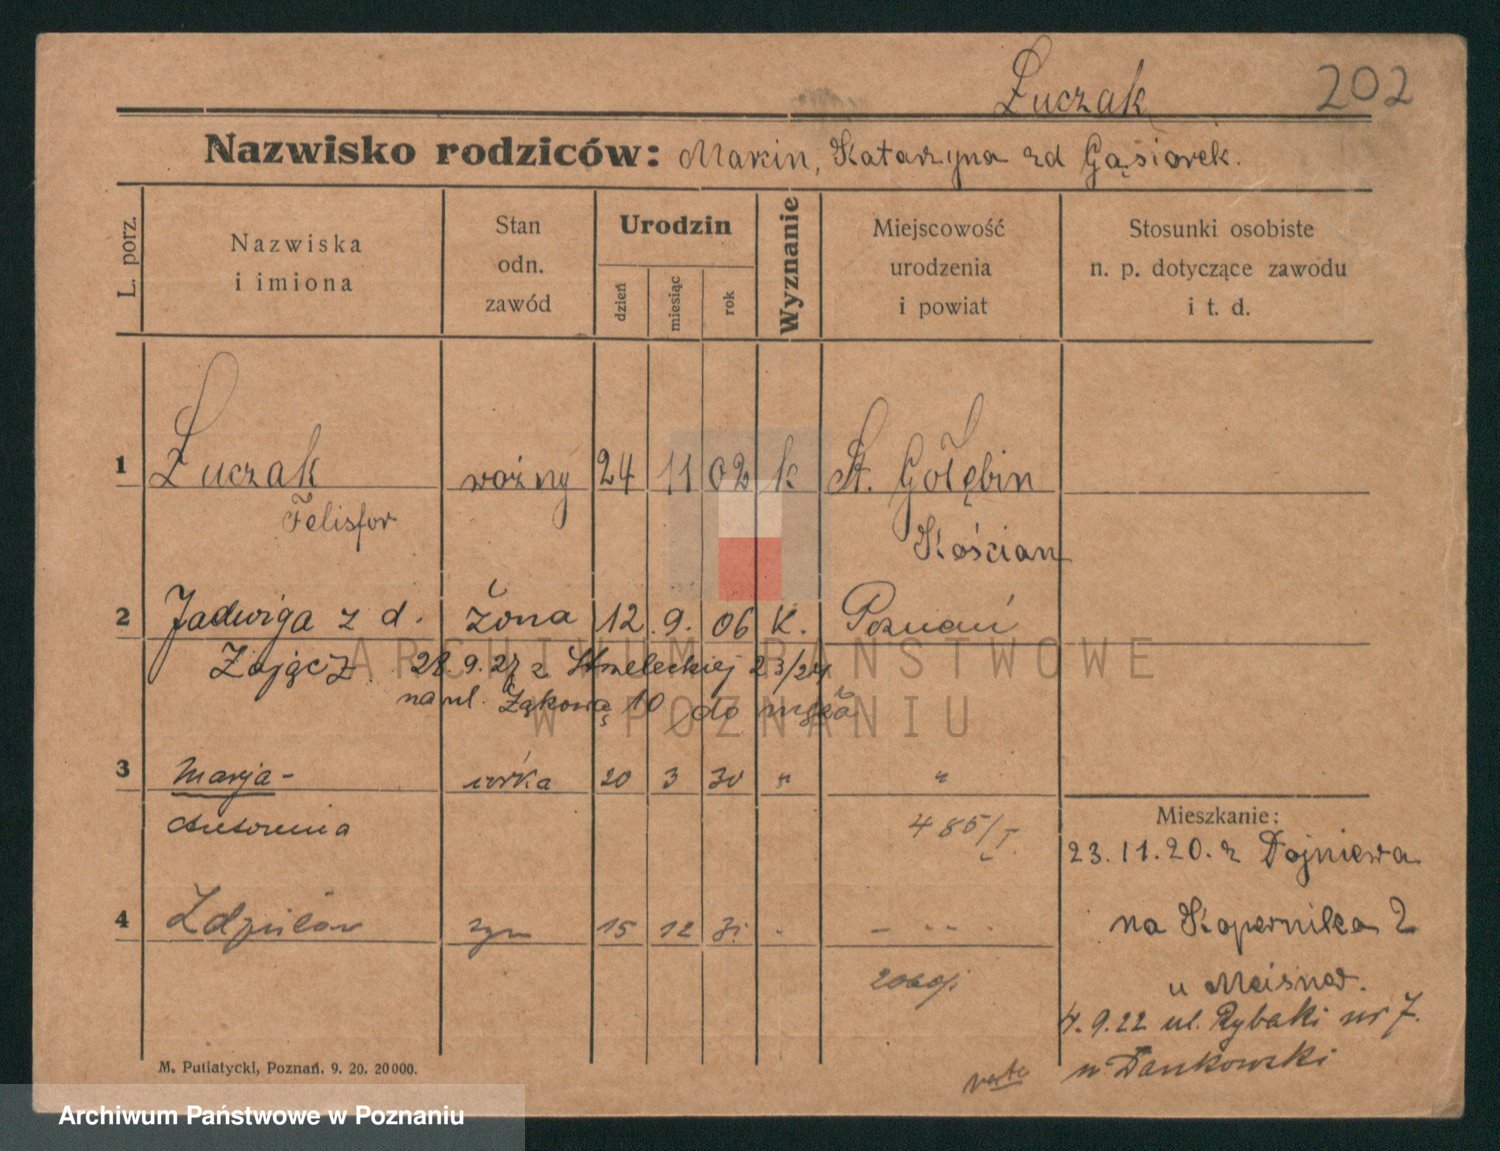 Łuczak 202
Nazwisko rodziców: Marcin, Katarzyna zd Gąsiorek.
L. porz.
Nazwiska i imiona
Stan odn. zawód
Urodzin
dzień
miesiąc
rok
Wyznanie
Miejscowość urodzenia i powiat
Stosunki osobiste n. p. dotyczące zawodu i t. d.
1 Łuczak woźny 24 11 02 k St. Gołębin
Telisfor Kościan
2 Jadwiga z d. żona 12. 9. 06 K. Poznań
Zając z 28.9.27 z Strzeleckiej 23/24
na ul. Łąkową 10 do męża
3 Marja- córka 20 3 30 " "
Antonina 485/I.
Mieszkanie:
23.11.20. z Dojniewa
4 Zdzisław syn 15 12 31 - - - -
na Kopernika 2
u Meisner.
4.9.22 ul. Rybaki nr 7.
u Dankowski
verte
M. Putiatycki, Poznań. 9. 20. 20000.
ARCHIWUM PAŃSTWOWE
W POZNANIU
Archiwum Państwowe w Poznaniu